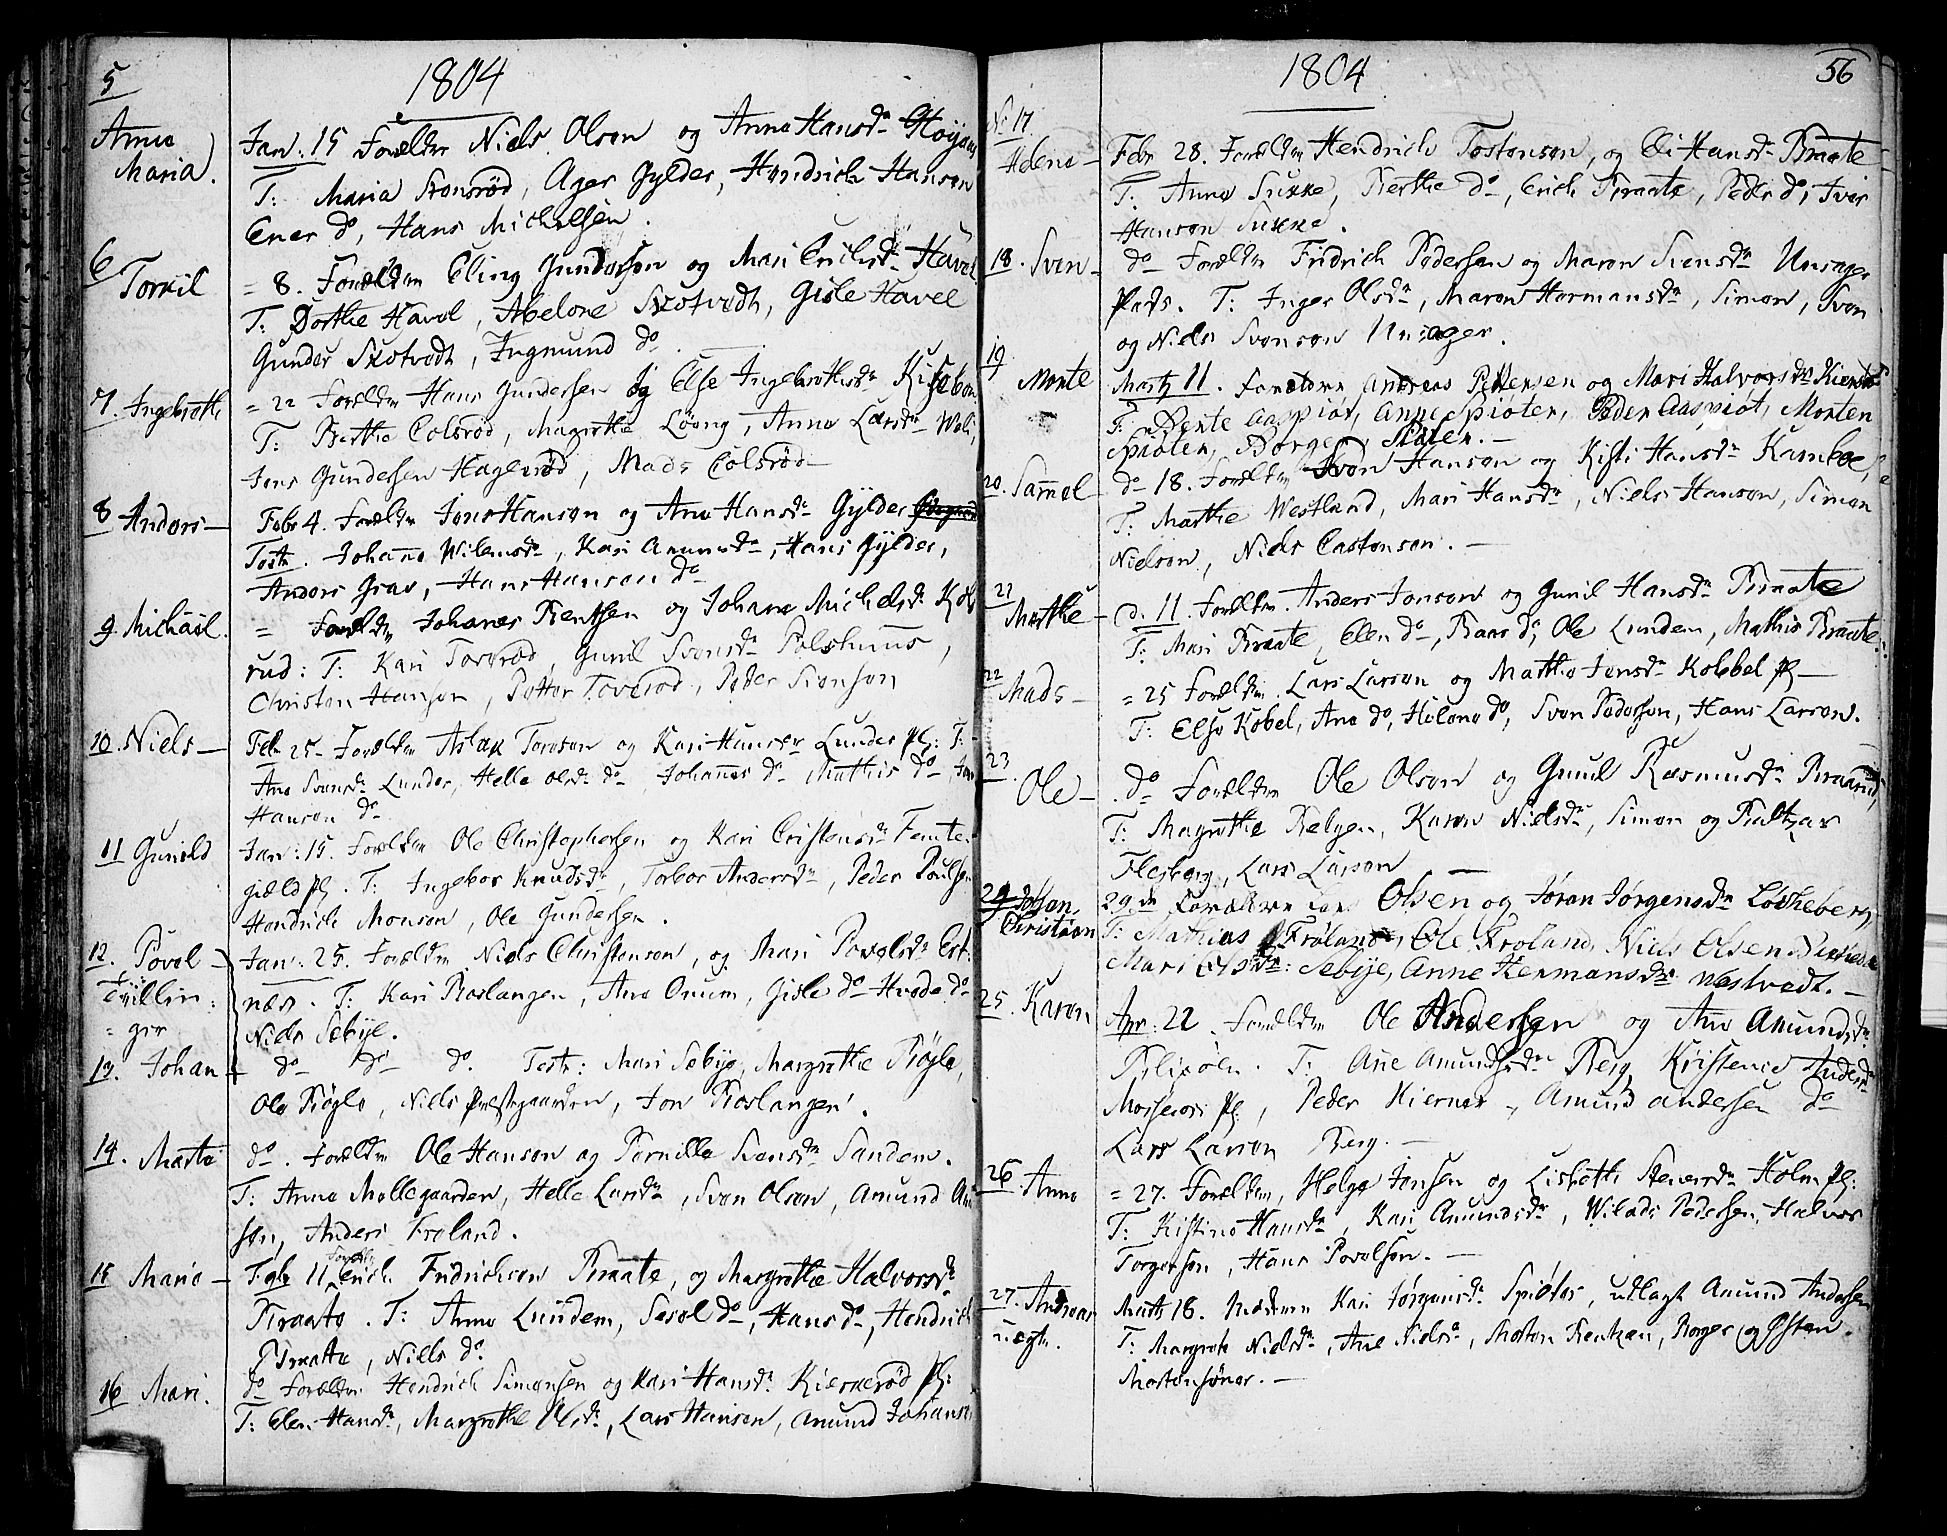 5
1804
Anne
Maria.
Jan: 15 Forældre Niels Olsen og Anne Hansdr Høyaas
T: Maria Stensrød, Ager Gylder, Hendrich Hansen
Ener do, Hans Michelsen.
6
Torkil
= 8. Forældre Elling Gundersen og Mari Erichsdr Havel
T: Dorthe Havel, Abelone Skotvedt, Gisle Havel
Gunder Skotvedt, Ingmund do
7. Ingebrethe
= 22 Forældre Hans Gundersen og Else Ingebrethsdr Kisebon
T: Berthe Colsrød, Magrethe Løvng, Anne Larsdr
Jens Gundersen Hagensrød, Mads Colsrød
8 Anders
Febr 4. Forældre Jens Hansen og Ane Hansdr Gylder
Test. Johanne Wilemsdr, Kari Amunsdr, Hans Gylder,
Anders Grav, Hans Hansen do
9. Michael.
= Forældre Johanes Bentsen og Johane Michelsdr Kols
rud: T: Kari Torsrød, Gunil Svensdr Polshuus,
Christen Hansen, Petter Toverød, Peder Svensen
10. Niels
Feb 25 - Forældre Aslak Toresen og Kari Hansdr Lunder pl: T:
Ane Svensdr Lunder, Helle Olsdr do, Johannes do Mathis do, Jens
Hansen do
11 Gunild
Jan: 15. Forældre Ole Christophersen og Kari Cristensdr Femte
gield pl. T: Ingebor Knudsdr, Torbor Andersdr, Peder Poulsen
Hendrich Monsen, Ole Gundersen.
12. Povel
Tvillin:
= ger
Jan: 25. Forældre Niels Christensen, og Mari Povelsdr Est:
næs. T: Kari Roslangen, Ane Onum, Gisle do Hvede do
Niels Sebye.
13. Johan
do do do. Test: Mari Sebye, Margrethe Bøgle,
Ole Bøgle, Niels Prestegaarden, Jon Roslangen.
14. Marte
do. Forældre Ole Hansen og Pernille Svensdr Sandem.
T: Anne Møllegaarden, Helle Larsdr, Sven Olsen, Amund An
sen, Anders Froland.
15 Marie
Feb 11 Forældre Erich Fridrichsen Braate, og Margrethe Halvorsdr
Braate. T: Anne Lundem, Sesel do, Hans do, Hendrich
Braate, Niels do
16 Mari.
do Forældre Hendrich Simonsen og Kari Hansdr Kiererød pl:
T: Elen Hansdr, Margrethe Olsdr, Lars Hansen, Amund Johans
1804
56
No 17
Helene
Febr 28. Forældre Hendrich Tostensen, og Eli Hansdr Braate
T: Anne Sukke, Berthe do, Erich Braate, Peder do, Iver
Hansen Sukke.
18. Sven
do Forældre Fridrich Pedersen og Maren Svensdr Unsager
Pads. T: Inger Olsdr, Maren Hermansdr, Simon, Sven
og Niels Svensen Unsager.
19
Mente
Martz 11. Forældre Andreas Pettersen og Mari Halvorsdr
T: Bente Aaspiøt, Anne Spiøten, Peder Aaspiøt, Morten
Spiøten, Borge Spiøten.
20. Samel
do 18. Forældre Iver Hansen og Kisti Hansdr Kamboe,
T: Marthe Westland, Mari Hansdr, Niels Hansen, Simon
Nielsen, Niels Castensen.
21
Marthe
d. 11. Forældre. Anders Jonsen og Gunil Hansdr Braate
T: Mari Braate, Elen do, Baar do, Ole Lundem, Mathis Braate.
22
Mads
= 25 Forældre. Lars Larsen og Marthe Jensdr Kobbel pl
T: Else Kobel, Ane do, Helene do, Sven Pedersen, Hans Larsen.
23.
Ole
do Forældre Ole Olsen og Gunil Rasmusdr Braarud,
T: Magrethe Belgen, Karen Nielsdr, Simon og Baltzar
Flesberg, Lars Larsen
24 Johan
Christian
29de Forældre Lars Olsen og Jøran Jørgensdr Løckeberg
T: Mathias Frøland, Ole Froland, Niels Olsen
Mari Olsdr: Sebye, Anne Hermansdr Westvedt.
25. Karen
Apr: 22. Forældre Ole Andersen og Ane Amundsdr
T: Ane Amundsdr Berg, Kristense Andersdr
Morserøs pl., Peder Kiernes, Amund Andersen do
Lars Larsen Berg.
26 Anne
= 27. Forældre, Helge Jensen og Lisbeth Stenersdr Holm pl:
T: Kistine Hansdr, Kari Amundsdr, Wilads Pedersen, Halvor
Torgersen, Hans Povelsen.
27. Andreas
uægte.
Marts 18. Moderen Kari Jørgensdr Spiøter, udlagt Amund Andersen
T: Margrete Nielsdr, Ane Nielsdr, Morten Bentzen, Borger og Østen
Mortensønner.